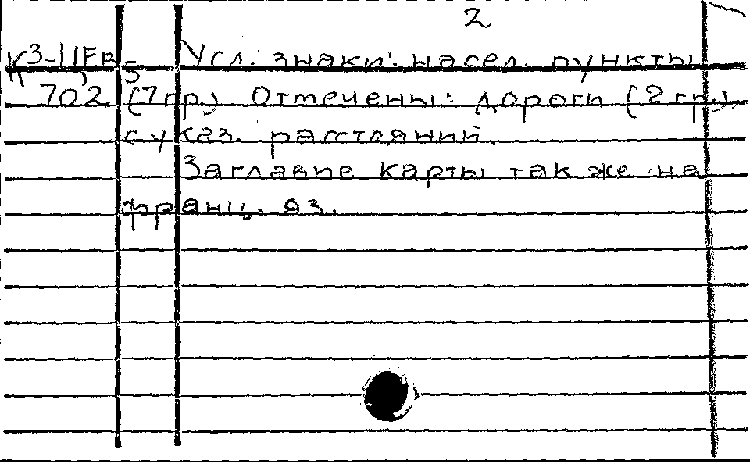 2
К3-IIFв Усл. знаки: насел. пункты
5
702 (7 гр.) Отмечены: дороги (2 гр.)
с указ. расстояний.
Заглавие карты так же на
франц. яз.